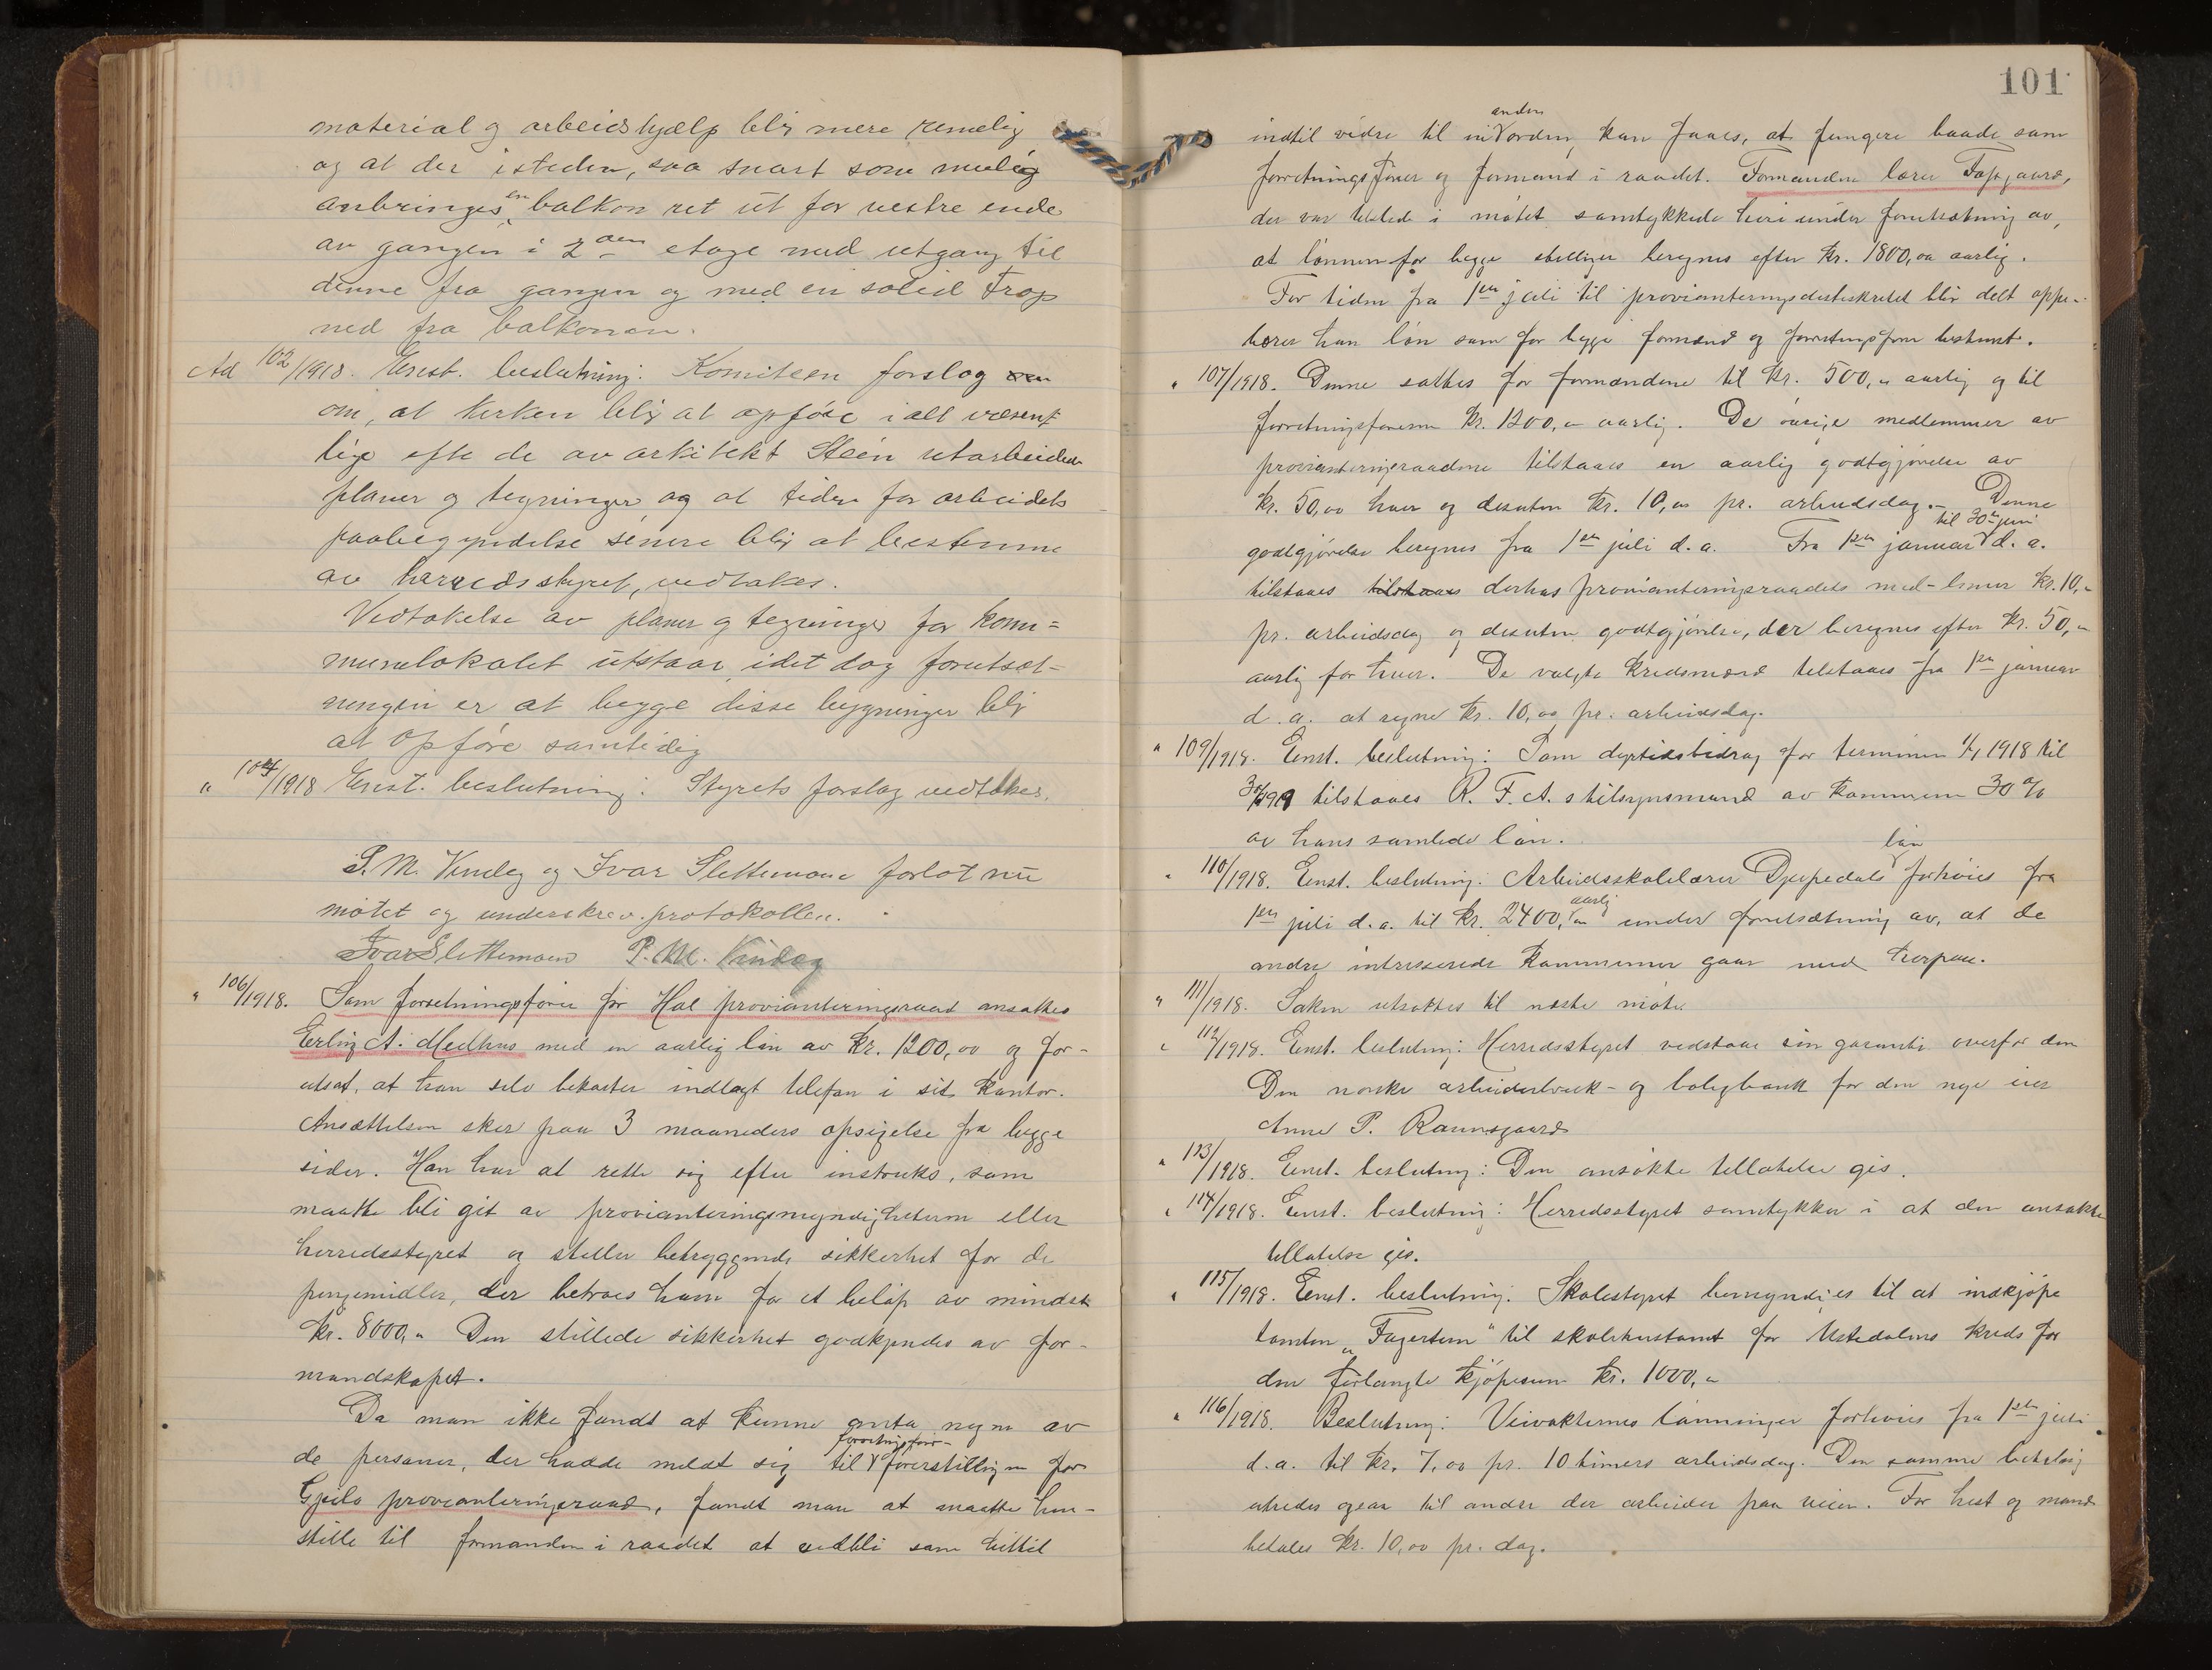 material og arbeidshjælp blir mere rimelig
og at der isteden, saa snart som mulig
anbringes en balkon ret ut for vestre ende
av gangen i 2den etage med utgang til
denne fra gangen og med en solid trap
ned fra balkonen.
Ad 102/1918. Enst. beslutning: Komiteen forslag
om, at kirken blir at opføre i alt væsent-
lige efte de av arkitekt Steen utarbeidede
planer og tegninger og at tiden for arbeidets
paabegyndelse senere blir at bestemme
av herredsstyret, vedtakes.
Vedtakelse av planer og tegninger for kom=
munelokalet utstaar, idet dog forutsæt-
ningen er at begge disse bygninger blir
at opføre samtidig
" 104/1918 Enst. beslutning: Styrets forslag vedtakes.
P. M. Vindeg og Ivar Slettemoen forlot nu
møtet og underskrev protokollen.
Ivar Slettemoen P. M. Vindeg
" 106/1918. Som forretningsfører for Hol provianteringsraad ansattes
Erling A. Medhus med en aarlig løn av kr. 1200,00 og for-
utsat, at han selv bekoster indlagt telefon i sit kontor.
Ansættelsen sker paa 3 maaneders opsigelse fra begge
sider. Han har at rette sig efter instruks, som
maatte bli git av provianteringsmyndigheterne eller
herredsstyret og stiller betryggende sikkerhet for de
pengemidler, der betroes ham for et beløp av mindst
kr. 8000,- Den stillede sikkerhet godkjendes av for-
mandskapet.
Da man ikke fandt at kunne anta nogen av
de personer, der hadde meldt sig til forretningsfør-
førerstillingen for
Gjeilo provianteringsraad, fandt man at maatte hen-
stille til formanden i raadet at vedbli som hittil
101
indtil vidre til en anden ordning kan faaes, at fungere baade som
forretningsfører og formand i raadet. Formanden lærer Fossgaard,
der var tilstede i møtet samtykkede heri under forutsætning av,
at lønnen for begge stillinger beregnes efter kr. 1800,00 aarlig.
For tiden fra 1ste juli til provianteringsdistriktet blir delt oppe-
bærer han løn som for begge formand og forretningsfører bestemt.
" 107/1918. Denne sattes for formændene til kr. 500,- aarlig og til
forretningsføreren kr. 1200,- aarlig. De øvrige medlemmer av
provianteringsraadene tilstaaes en aarlig godtgjørelse av
kr. 50,00 hver og desuten kr. 10,00 pr. arbeidsdag.- Denne
godtgjørelse beregnes fra 1ste juli d.a. Fra 1ste januar til 30te juni d.a.
tilstaaes tilstaaes derhos provianteringsraadets med-lemmer kr. 10,-
pr. arbeidsdag og desuten godtgjørelse, der beregnes efter kr. 50,-
aarlig for hver. De valgte kredsmænd tilstaaes fra 1ste januar
d.a. at regne kr. 10,00 pr. arbeidsdag.
" 109/1918. Enst. beslutning: Som dyrtidsbidrag for terminen 1/1 1918 til
1919 tilstaaes R. F. A.s tilsynsmand av kommunen 30 %
av hans samlede løn.
" 110/1918. Enst. beslutning: Arbeidsskolelærer Djupedals løn forhøies fra
1ste juli d.a. til kr. 2400,00 aarlig under forutsætning av, at de
andre interesserede kommuner gaar med herpaa.
" 111/1918. Saken utsattes til næste møte.
" 112/1918. Enst. beslutning: Herredsstyret vedstaar sin garanti overfor den
Den norske arbeiderbruk- og boligbank for den nye eier
Anne P. Raunsgaard
" 113/1918. Enst. beslutning: Den ansøkte tillatelse gis.
" 114/1918. Enst. beslutning: Herredsstyret samtykker i at den ansøkte
tillatelse gis.
" 115/1918. Enst. beslutning. Skolestyret bemyndiges til at indkjøpe
tomten „Fagertun“ til skolehustomt for Ustedalens kreds for
den forlangte kjøpesum kr. 1000,-
" 116/1918. Beslutning: Veivokternes lønninger forhøies fra 1ste juli
d.a. til kr. 7,00 pr. 10 timers arbeidsdag. Den samme betaling
utredes ogsaa til andre der arbeider paa veien. For hest og mand
betales kr. 10,00 pr. dag.